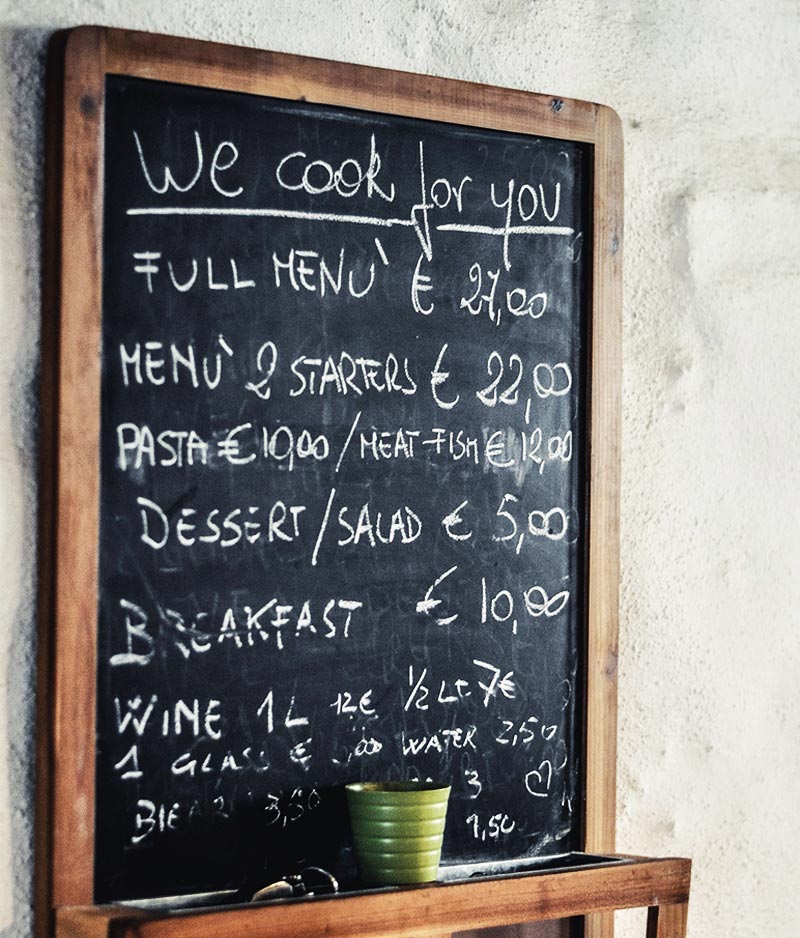 We cook for you
FULL MENU` € 27,00
MENU` 2 STARTERS € 22,00
PASTA € 10,00 / MEAT-FISH € 12,00
DESSERT / SALAD € 5,00
BREAKFAST € 10,00
WINE 1L 12€ 1/2 LT 7€
1 GLASS € WATER 2,50
3 ♡
3,50 1,50